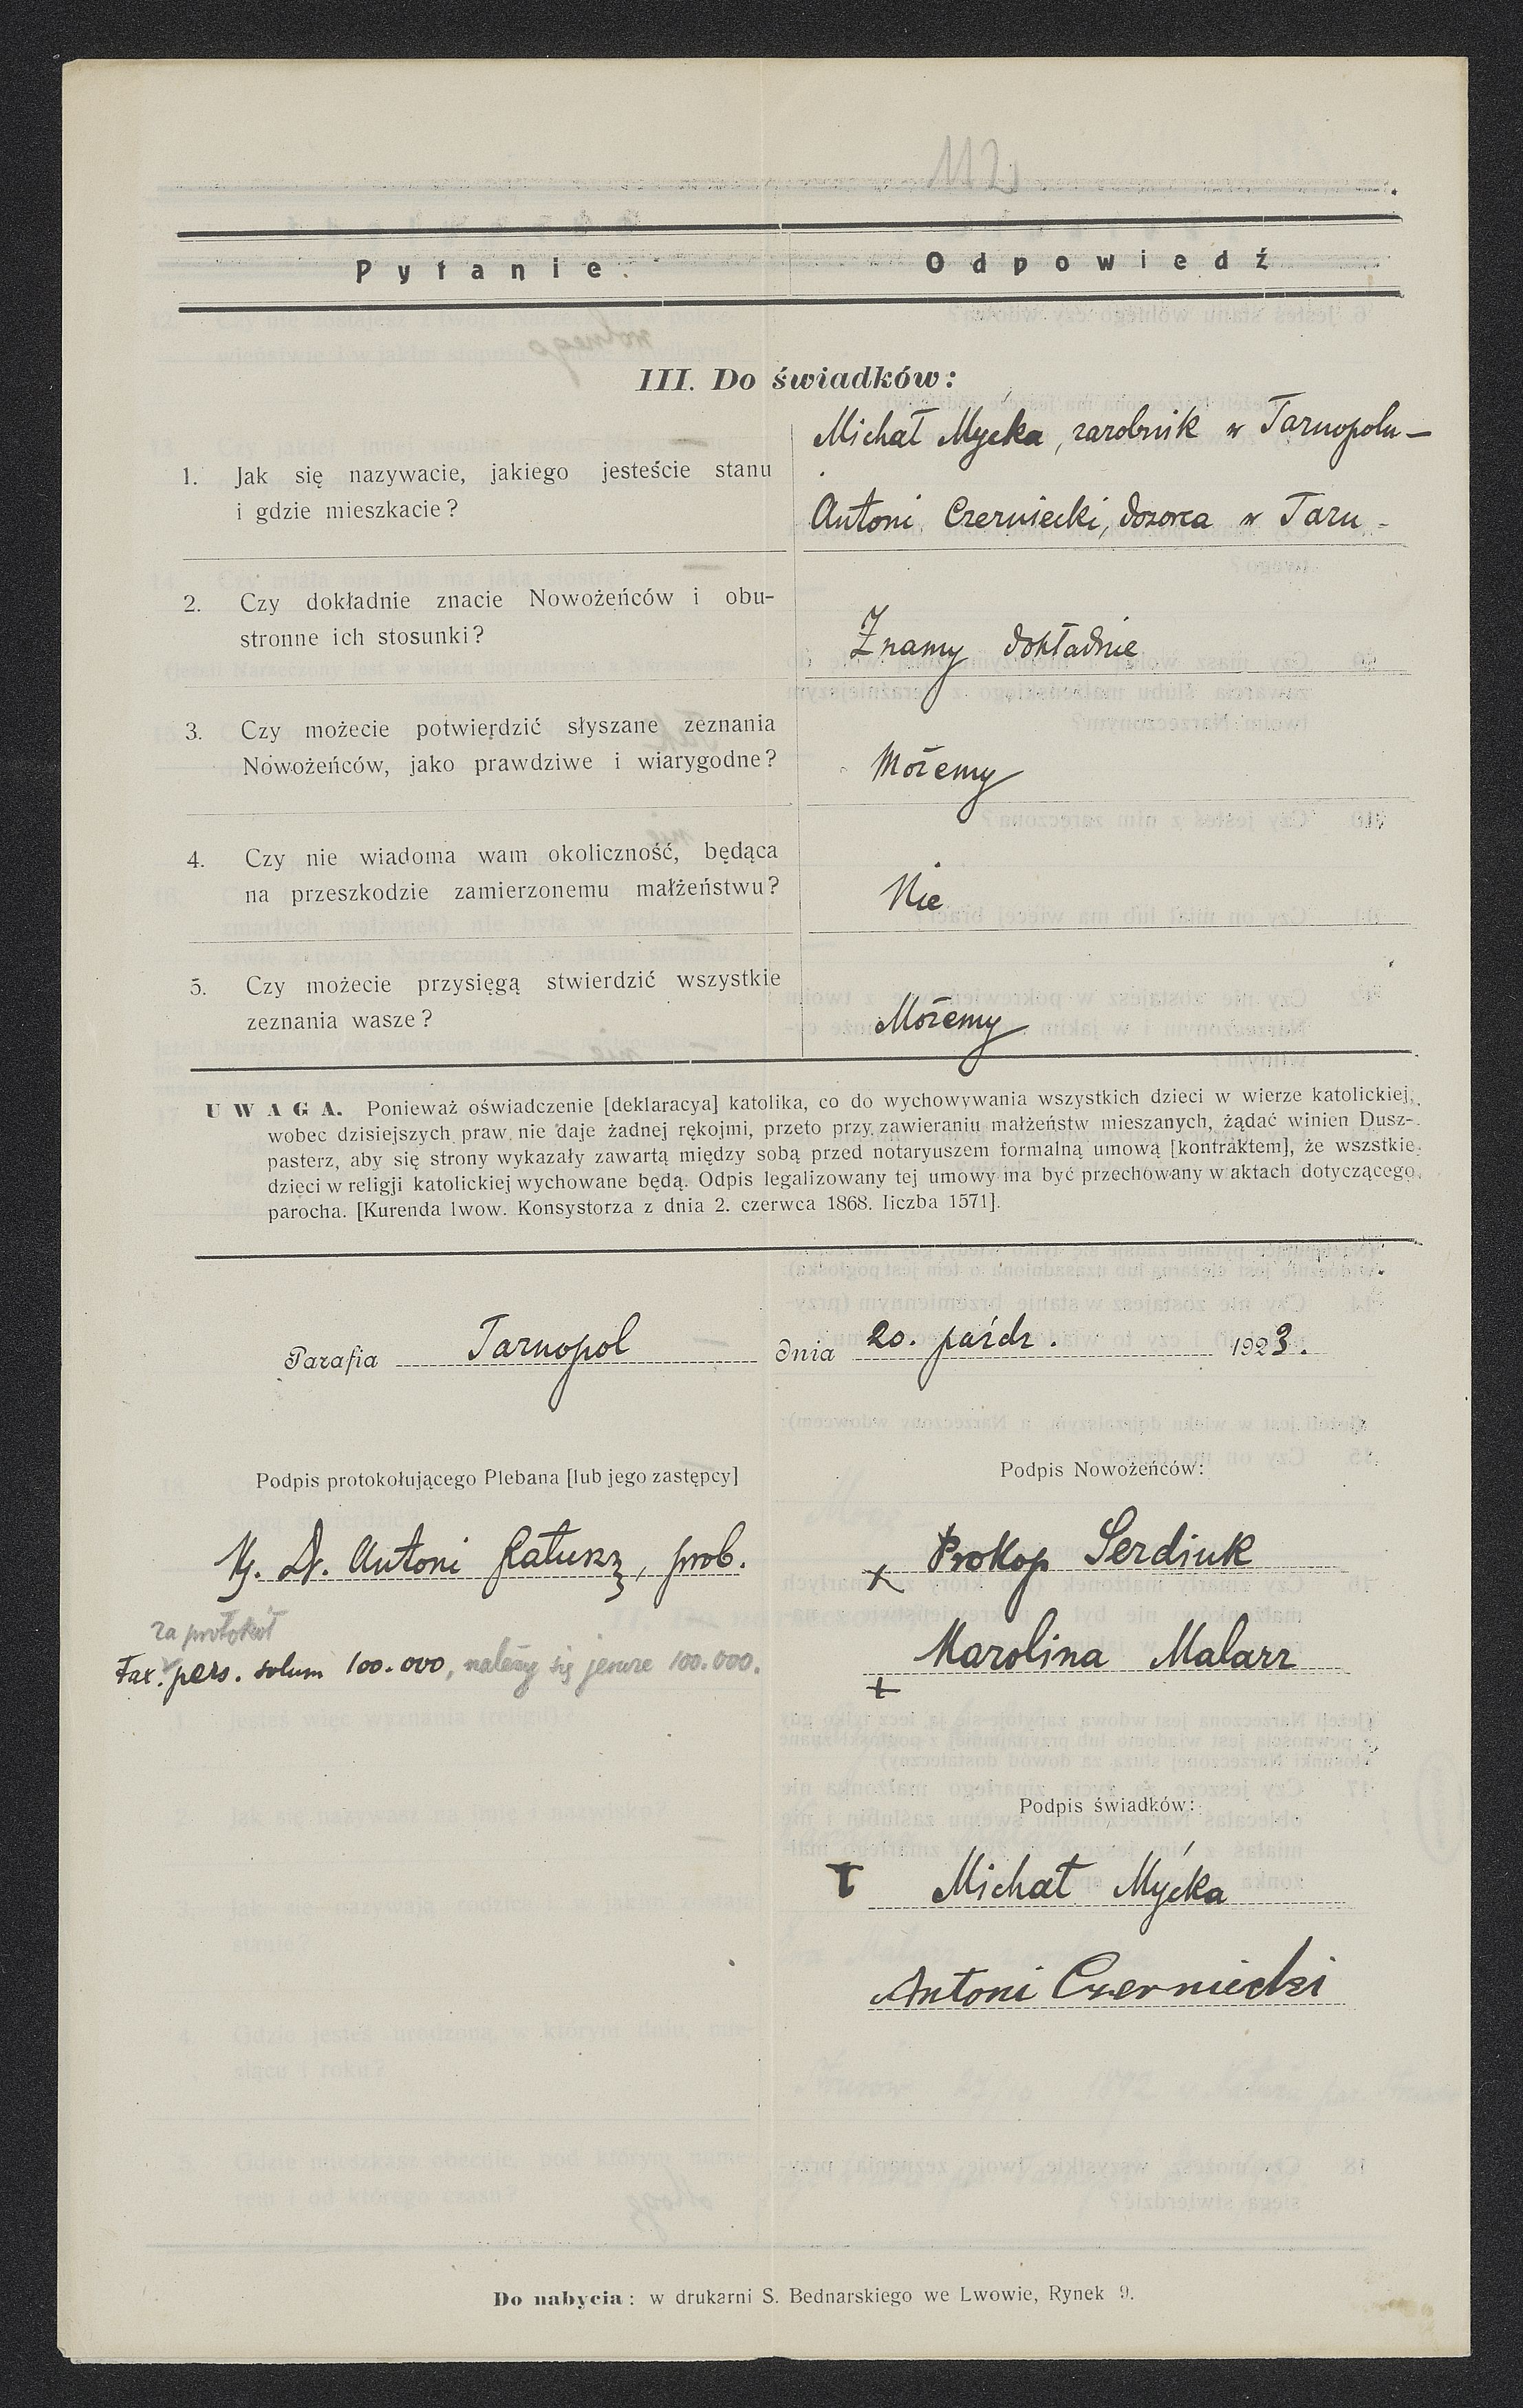 112
Pytanie Odpowiedź
III. Do świadków:
1. Jak się nazywacie, jakiego jesteście stanu
i gdzie mieszkacie?
Michał Mycka, zarobnik w Tarnopolu —
Antoni Czerniecki, dozorca w Tarn -
2. Czy dokładnie znacie Nowożeńców i obu-
stronne ich stosunki?
Znamy dokładnie
3. Czy możecie potwierdzić słyszane zeznania
Nowożeńców, jako prawdziwe i wiarygodne?
Możemy
4. Czy nie wiadoma wam okoliczność, będąca
na przeszkodzie zamierzonemu małżeństwu?
Nie
5. Czy możecie przysięgą stwierdzić wszystkie
zeznania wasze?
Możemy
UWAGA. Ponieważ oświadczenie [deklaracya] katolika, co do wychowywania wszystkich dzieci w wierze katolickiej,
wobec dzisiejszych praw nie daje żadnej rękojmi, przeto przy zawieraniu małżeństw mieszanych, żądać winien Dusz-
pasterz, aby się strony wykazały zawartą między sobą przed notaryuszem formalną umową [kontraktem], że wszstkie
dzieci w religji katolickiej wychowane będą. Odpis legalizowany tej umowy ma być przechowany w aktach dotyczącego
parocha. [Kurenda lwow. Konsystorza z dnia 2. czerwca 1868. liczba 1571].
Parafia Tarnopol dnia 20. paźdz. 1923.
Podpis protokołującego Plebana [lub jego zastępcy] Podpis Nowożeńców:
Dr. Antoni Ratusz, prob.
x Prokop Serdiuk
za protokół
Tax. pers. solum 100.000, należy się jeszcze 100.000.
+ Karolina Malarz
Podpis świadków:
+ Michał Mycka
Antoni Czerniecki
Do nabycia: w drukarni S. Bednarskiego we Lwowie, Rynek 9.